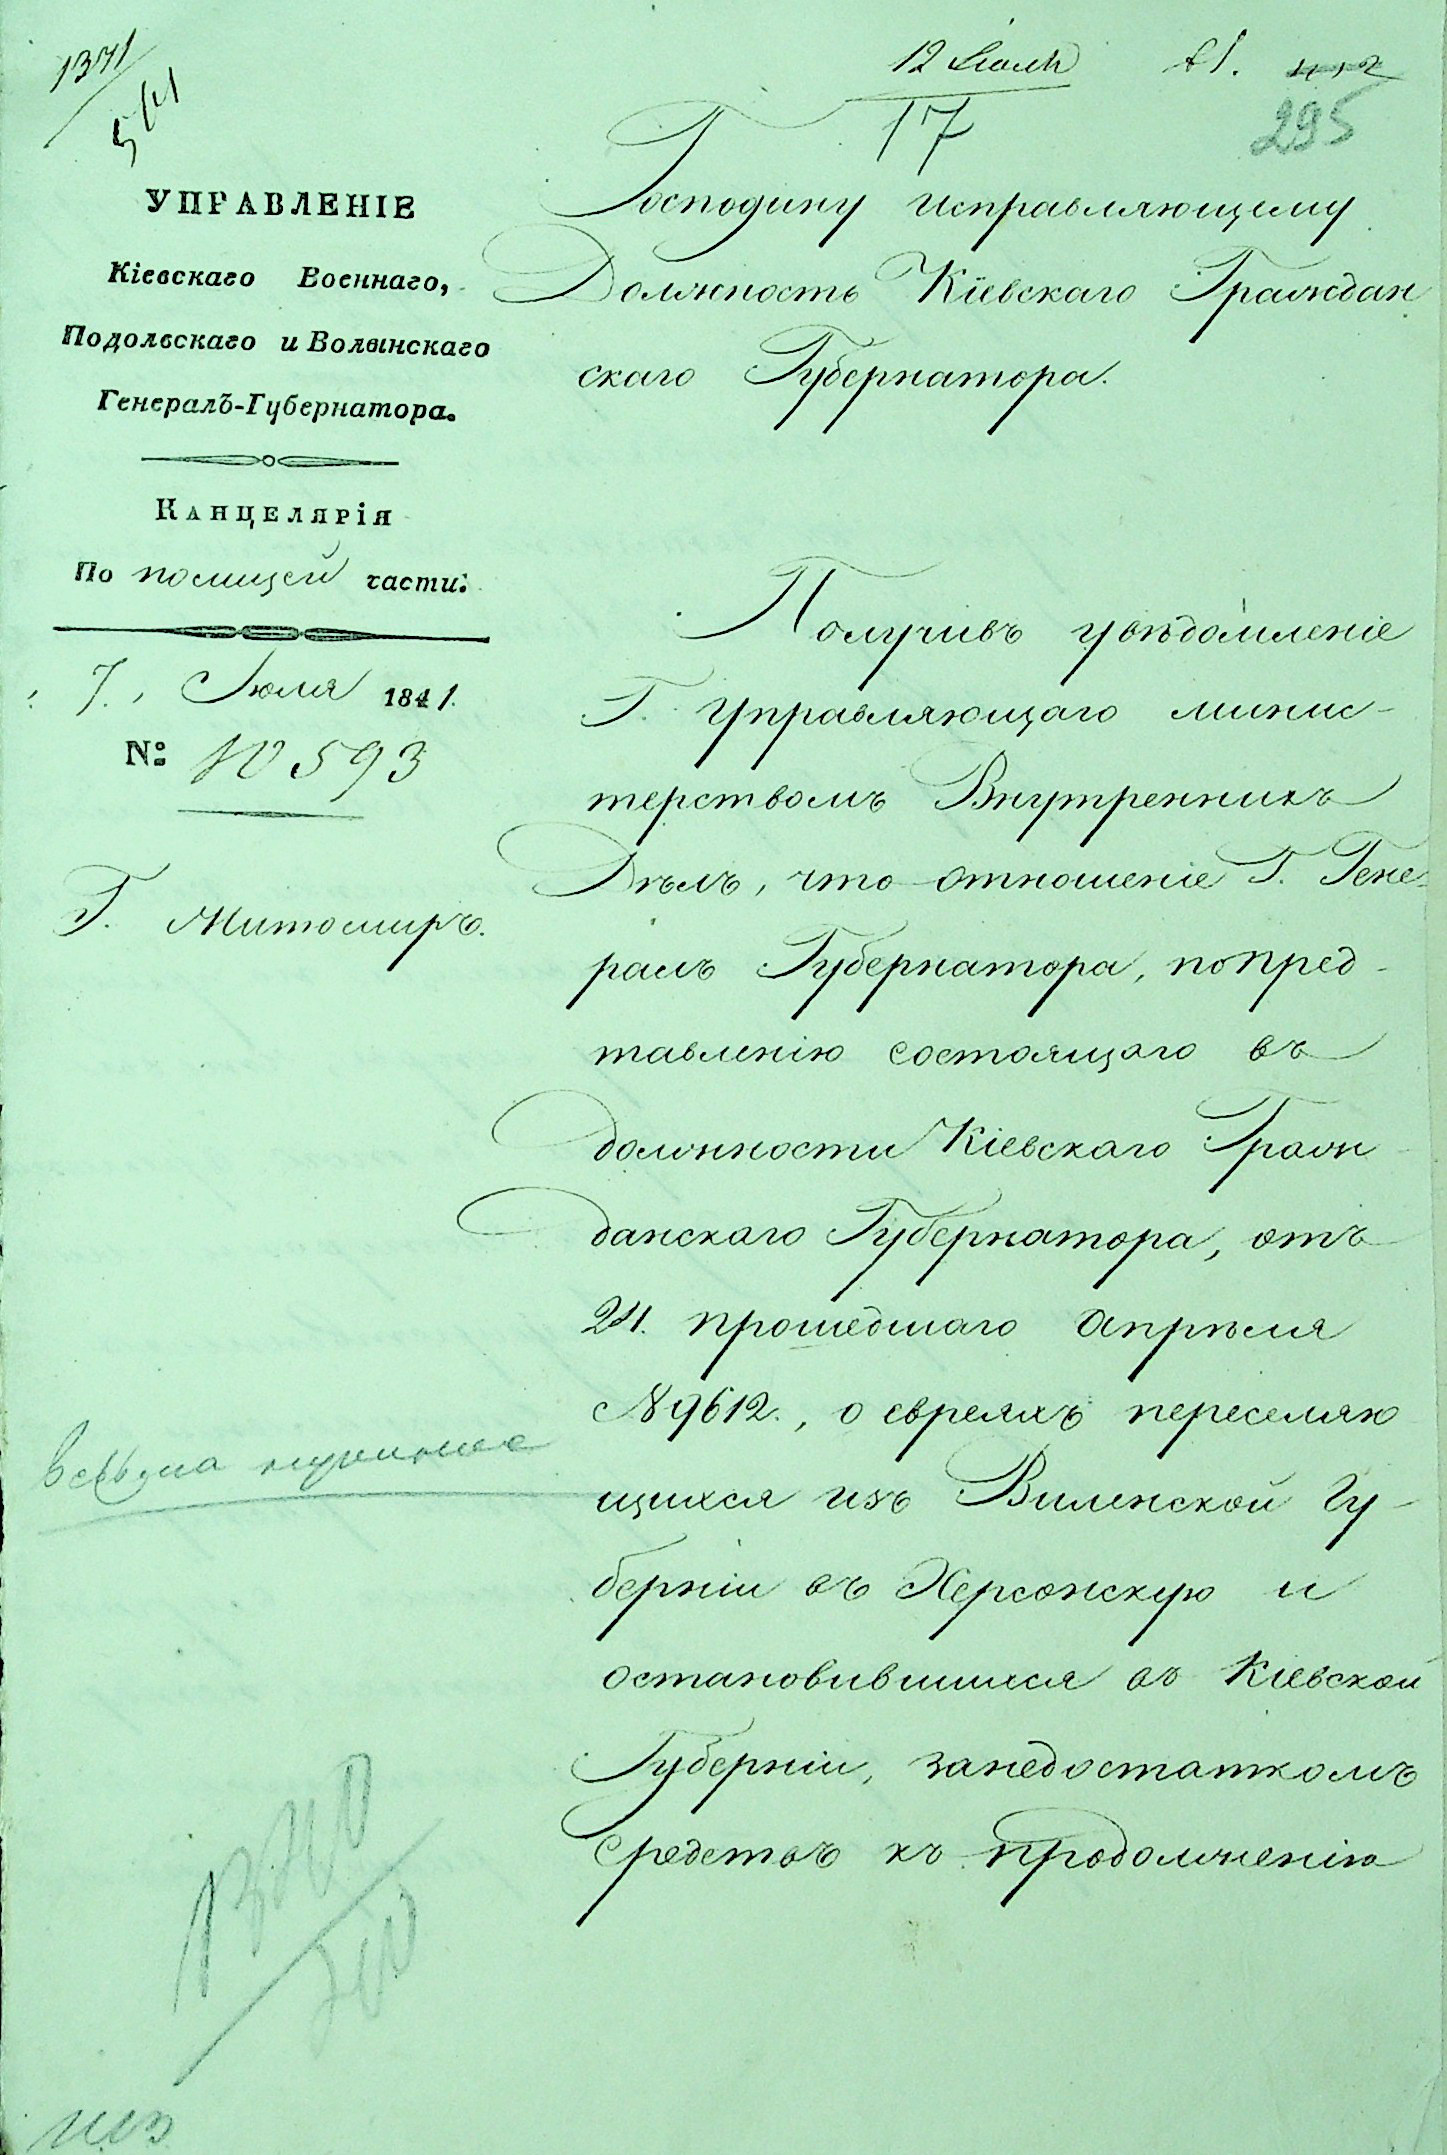 1371
541
12 Июля
17
295
УПРАВЛЕНІЕ
Кіевскаго Военнаго,
Подольскаго и Волынскаго
Генералъ-Губернатора.
Канцелярія
По полицей части:
7. Июля 1841.
№: 10593
Г. Житомиръ.
Господину исправляющему
Должность Кіевскаго Граждан
скаго Губернатора.
Получивъ увѣдомленіе
Г. Управляющаго минис-
терствомъ Внутреннихъ
Дѣлъ, что отношеніе Г. Гене-
ралъ Губернатора, по пред-
тавленію состоящаго въ
должности Кіевскаго Граж
данскаго Губернатора, отъ
24. прошедшаго Апрѣля
№ 9612., о евреяхъ переселяю
щихся изъ Виленской Гу-
берніи въ Херсонскую и
остановившихся въ Кіевской
Губерніи, занедостаткомъ
средствъ къ продолженію
весьма нужное
1340